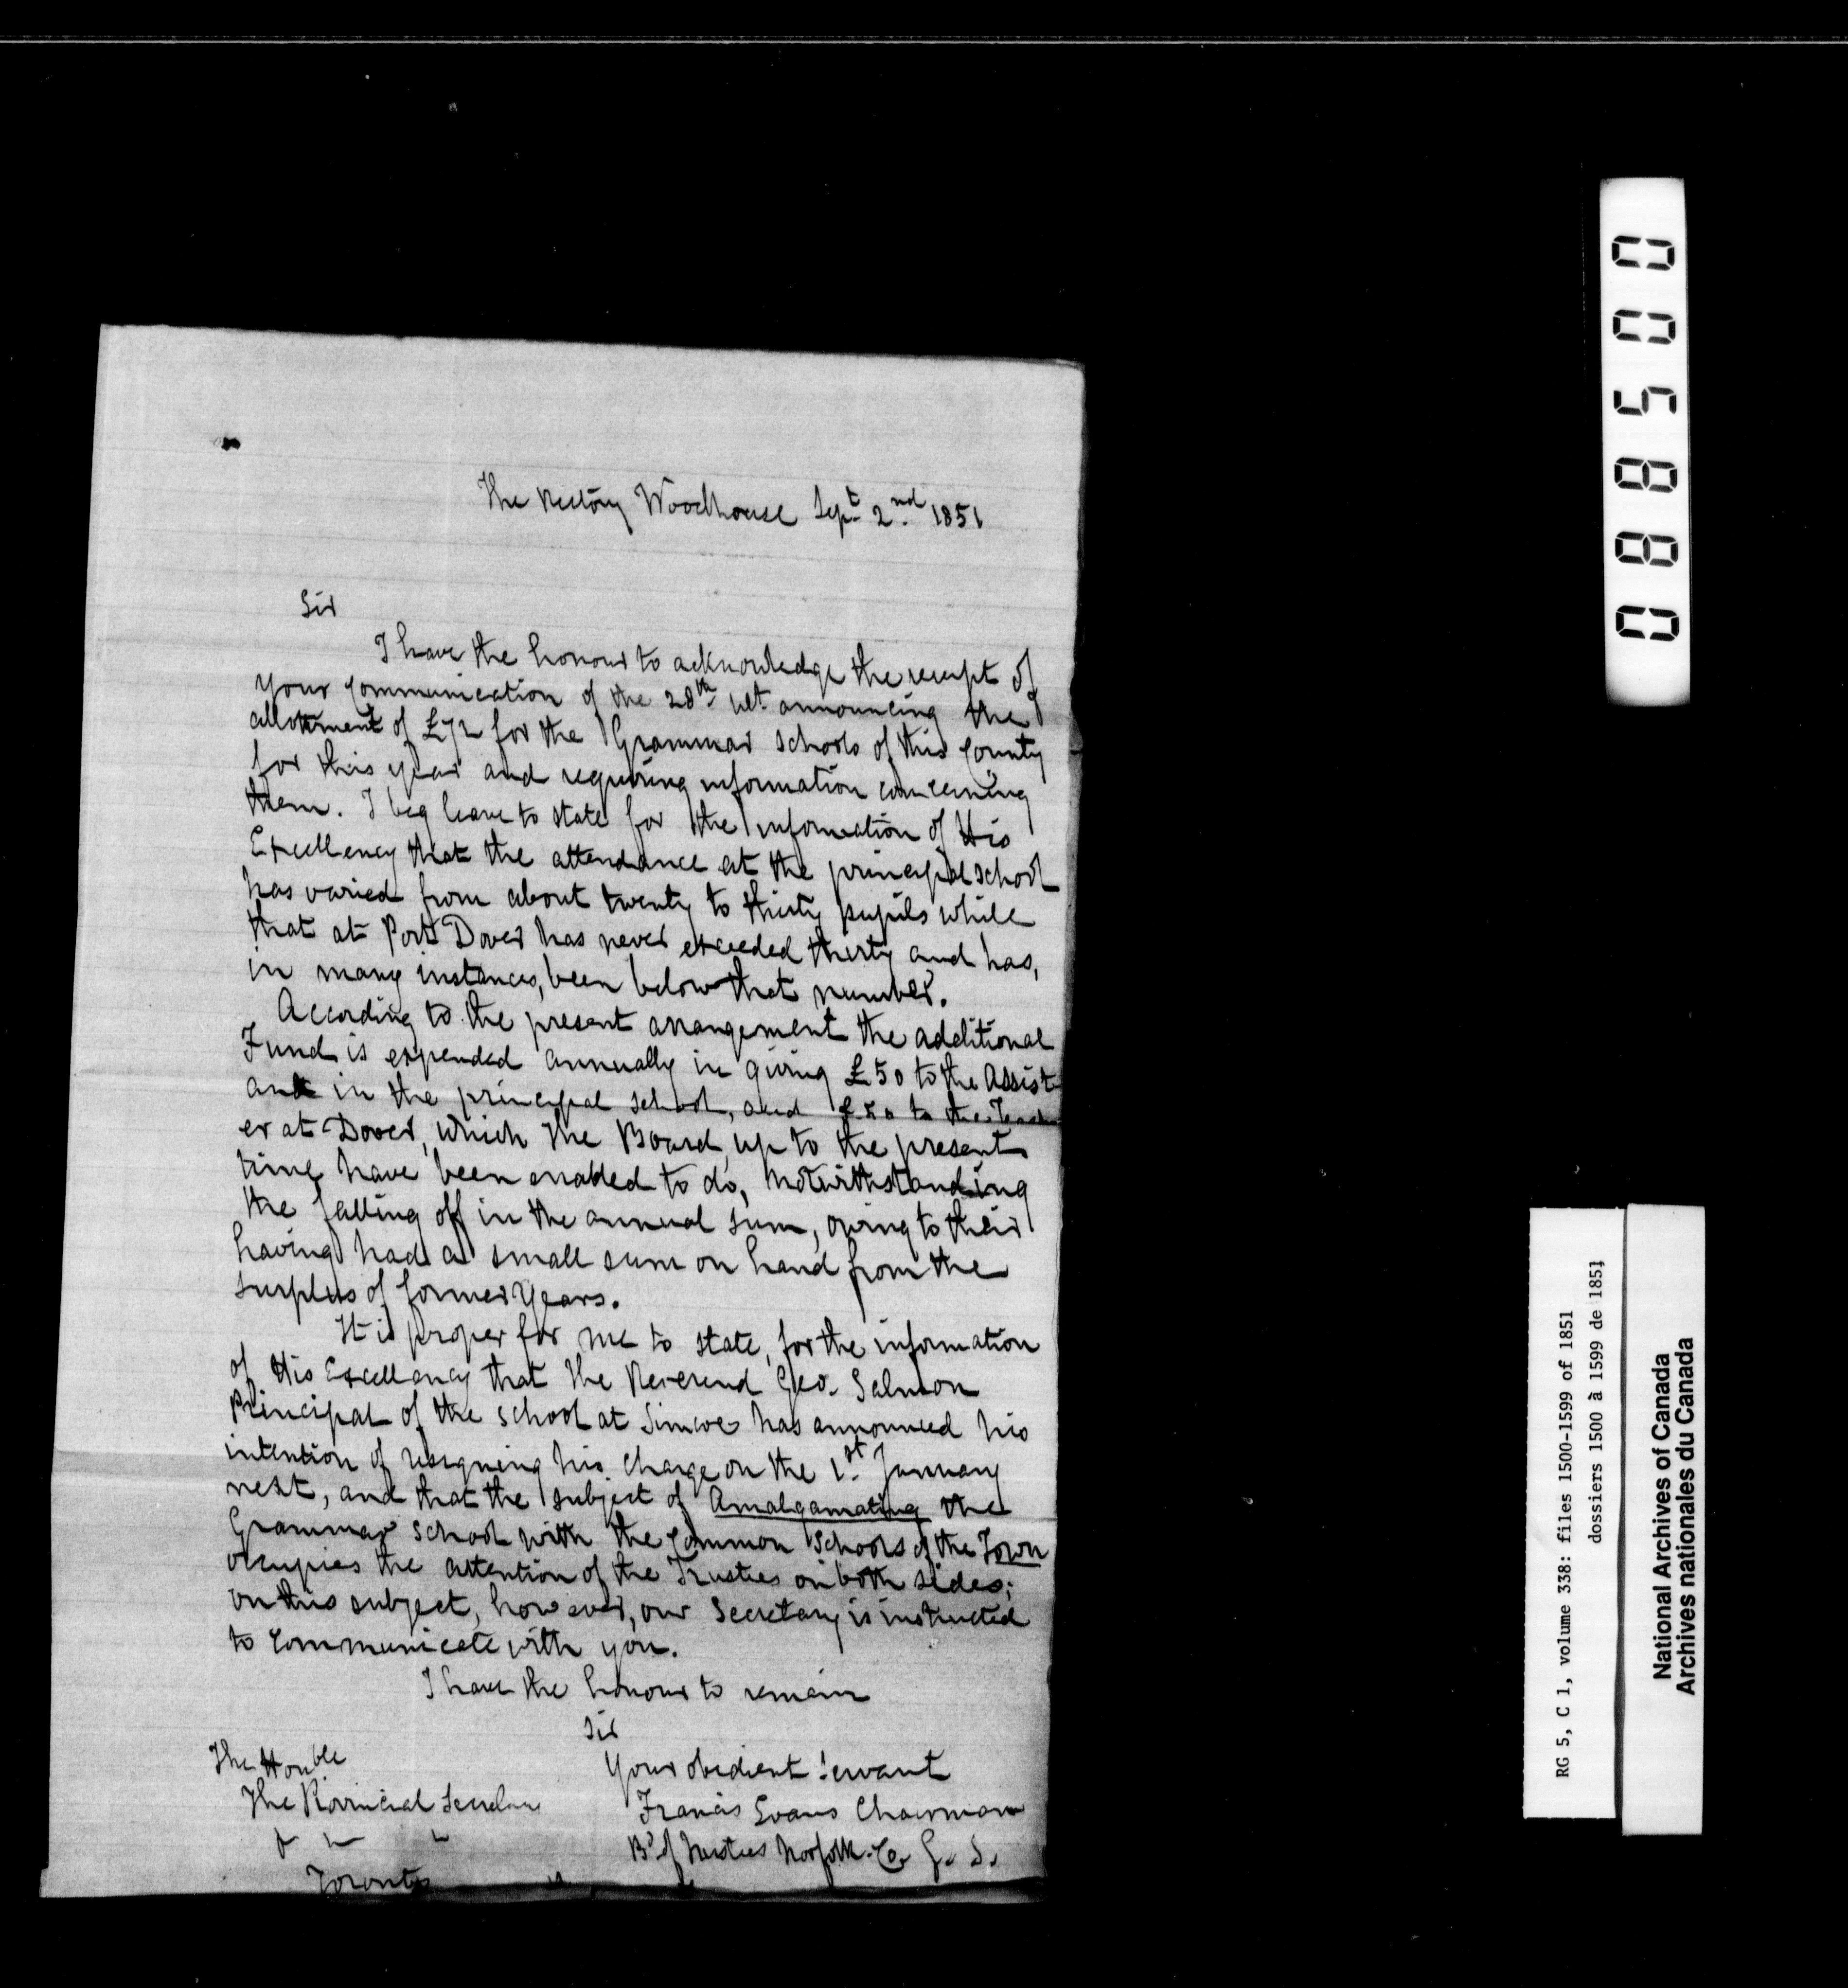 The Rectory Woodhouse Sept 2nd 1851
Sir
I have the honour to acknowledge the receipt of
your communication of the 28th ult. announcing the
allotment of £72 for the Grammar Schools of this County
for this year and requiring information concerning
them. I beg leave to state for the information of His
Excellency that the attendance at the principal School
has varied from about twenty to thirty pupils while
that at Port Dover has never exceeded thirty and has,
in many instances, been below that number.
According to the present arrangement the additional
Fund is expended annually in giving £50 to the Assist-
ant in the principal school, and £50 to the Teach
er at Dover, which the Board, up to the present
time have been enabled to do, notwithstanding
the falling off in the annual sum, owing to their
having had a small sum on hand from the
surplus of former years.
It is proper for me to state, for the information
of His Excellency that the Reverend Geo. Salmon
Principal of the School at Simcoe has announced his
intention of resigning his charge on the 1st January
next, and that the subject of Amalgamating the
Grammar School with the Common Schools of the Town
occupies the attention of the Trustees on both sides;
on this subject, however, our Secretary is instructed
to communicate with you.
I have the honour to remain
Sir
Your obedient Servant
Francis Evans Chairman
Bd of Trustees Norfolk Co. G. S.
The Honble
The Provincial Secretary
Toronto
088500
RG 5, C 1, volume 338: files 1500-1599 of 1851
dossiers 1500 à 1599 de 1851
National Archives of Canada
Archives nationales du Canada